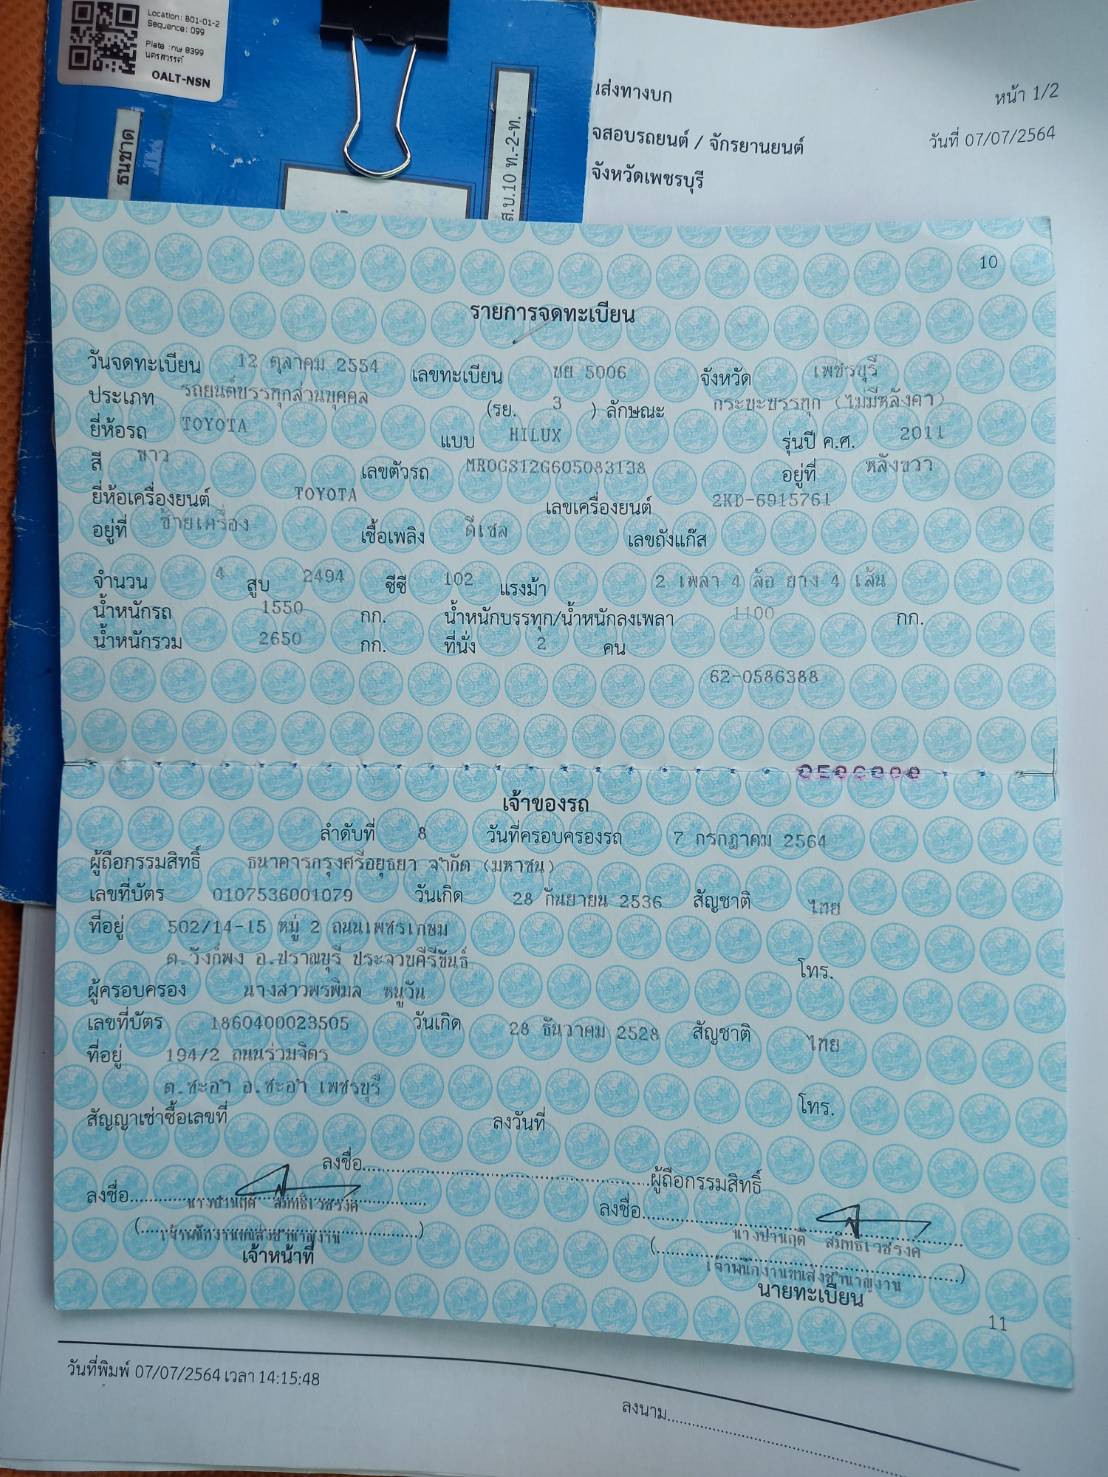 Location: B01-01-2
Sequence: 099
Plate :กม 8399
นครสวรรค์
OALT-NSN
ธนชาต
ส.บ.10 ท.-2-ท.
นส่งทางบก
หน้า 1/2
จสอบรถยนต์ / จักรยานยนต์
วันที่ 07/07/2564
จังหวัดเพชรบุรี
10
รายการจดทะเบียน
วันจดทะเบียน 12 ตุลาคม 2554 เลขทะเบียน ขย 5006 จังหวัด เพชรบุรี
ประเภท รถยนต์บรรทุกส่วนบุคคล (รย. 3 ) ลักษณะ กระบะบรรทุก (ไม่มีหลังคา)
ยี่ห้อรถ TOYOTA แบบ HILUX รุ่นปี ค.ศ. 2011
สี ขาว เลขตัวรถ MR0GS12G605083138 อยู่ที่ หลังขวา
ยี่ห้อเครื่องยนต์ TOYOTA เลขเครื่องยนต์ 2KD-6915761
อยู่ที่ ซ้ายเครื่อง เชื้อเพลิง ดีเซล เลขถังแก๊ส
จำนวน 4 สูบ 2494 ซีซี 102 แรงม้า 2 เพลา 4 ล้อ ยาง 4 เส้น
น้ำหนักรถ 1550 กก. น้ำหนักบรรทุก/น้ำหนักลงเพลา 1100 กก.
น้ำหนักรวม 2650 กก. ที่นั่ง 2 คน
62-0586388
เจ้าของรถ
ลำดับที่ 8 วันที่ครอบครองรถ 7 กรกฎาคม 2564
ผู้ถือกรรมสิทธิ์ ธนาคารกรุงศรีอยุธยา จำกัด (มหาชน)
เลขที่บัตร 0107536001079 วันเกิด 28 กันยายน 2536 สัญชาติ ไทย
ที่อยู่ 502/14-15 หมู่ 2 ถนนเพชรเกษม
ต.วังก์พง อ.ปราณบุรี ประจวบคีรีขันธ์ โทร.
ผู้ครอบครอง นางสาวพรพิมล หนูวัน
เลขที่บัตร 1860400023505 วันเกิด 28 ธันวาคม 2528 สัญชาติ ไทย
ที่อยู่ 194/2 ถนนร่วมจิตร
ต.ชะอำ อ.ชะอำ เพชรบุรี โทร.
สัญญาเช่าซื้อเลขที่ ลงวันที่
ลงชื่อ ผู้ถือกรรมสิทธิ์
ลงชื่อ นางปานฤดี สมิทธิเวชรงค์
(เจ้าพนักงานขนส่งชำนาญงาน)
เจ้าหน้าที่
ลงชื่อ นางปานฤดี สมิทธิเวชรงค์
(เจ้าพนักงานขนส่งชำนาญงาน)
นายทะเบียน
11
วันที่พิมพ์ 07/07/2564 เวลา 14:15:48
ลงนาม